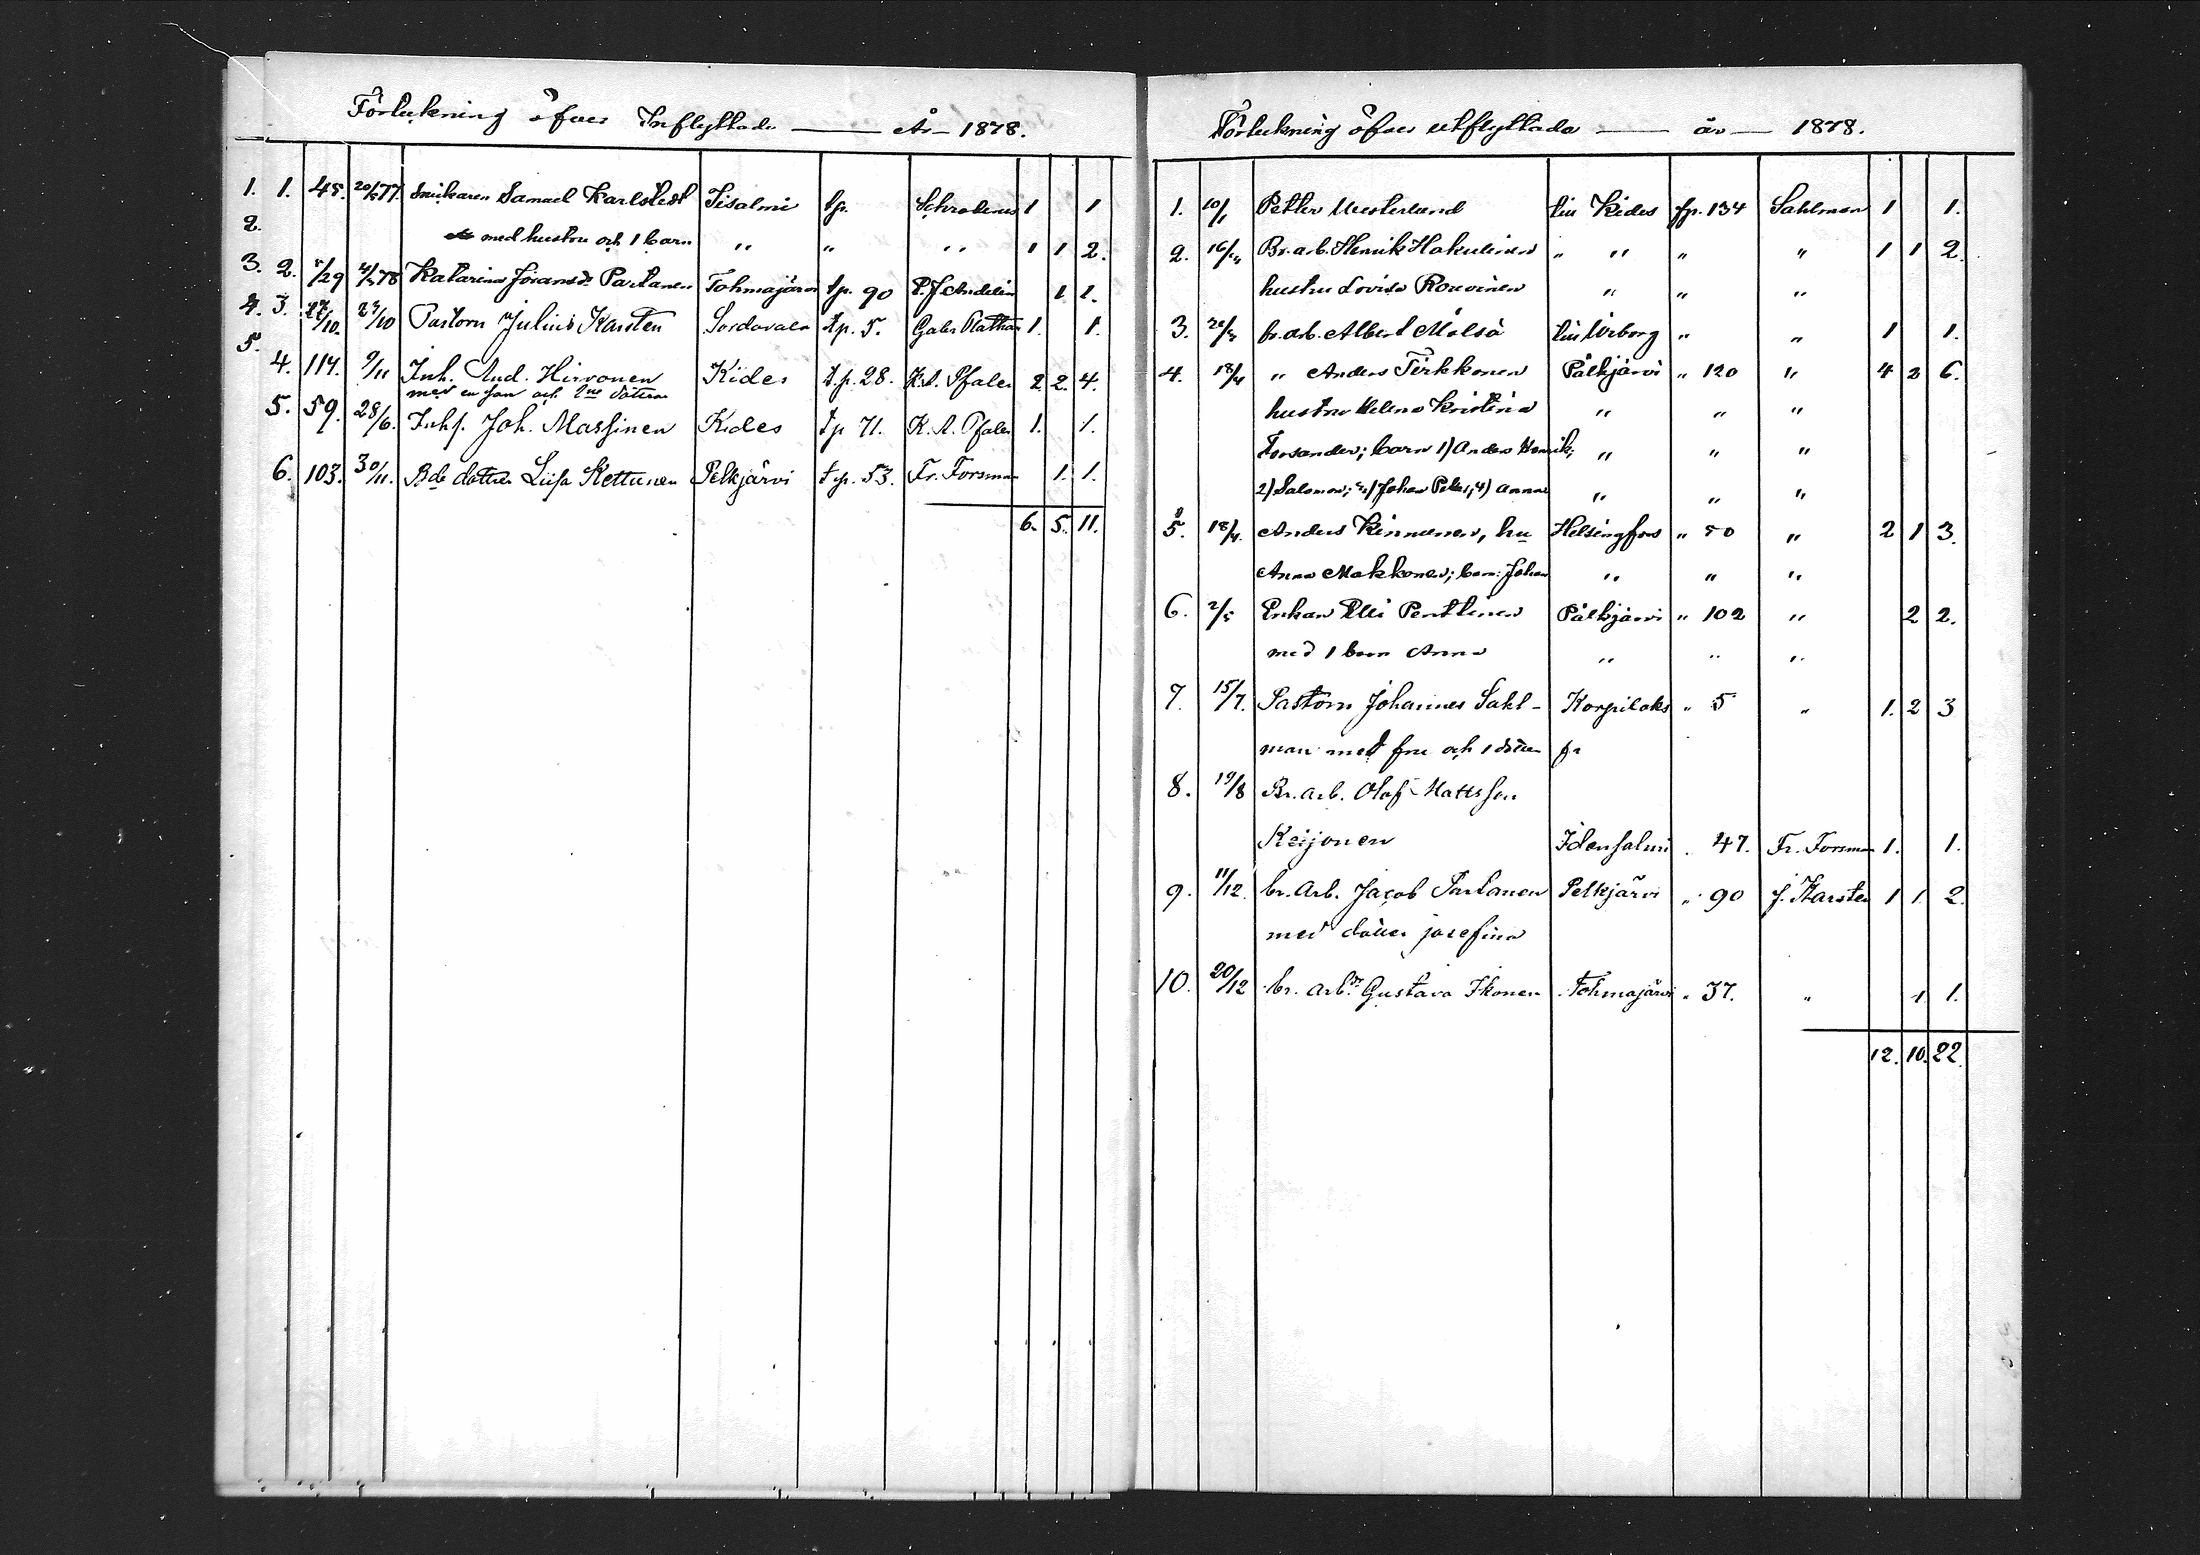 Förteckning öfver Inflyttade — År — 1878.
1. 1. 45. 20/577. Snickaren Samuel Karlstedt Iisalmi tp. Schroderus 1 1
2. med hustru och 1 barn " " " 1 1 2.
3. 2. 5/29 4/578 Katarina Göransdr Partanen Tohmajärvi tp. 90 P. J. Andelin 1. 1.
4. 3. 27/10 Pastorn Julius Karsten Sordavala tp. 5. Gabr. 1. 1.
5.
4. 114. 9/11 Inh. And. Hirvonen Kides t.p. 28. K. A. Pfaler 2. 2. 4.
med en son och 2ne döttrar
5. 59. 28/6. Inhs. Joh. Massinen Kides tp 71. K. A. Pfaler 1. 1.
6. 103. 30/11. Bde dotter Liisa Kettunen Pelkjärvi t.p. 53. Fr. Forsman 1. 1.
6. 5. 11.
Förteckning öfver utflyttade — år — 1878.
1. 10/1 Petter Westerlund till Kides fp. 134 Sahlman 1 1.
2. Br. arb. Henrik Hakulinen " " " " 1 1 2.
hustru Lovisa Rouvinen " " "
3. br. arb. Albert Mölsä till Wiborg " " 1 1.
4. 18/4 " Anders Tirkkonen Pälkjärvi " 120 " 4 2 6.
hustru Helena Kristina " " "
Forsander; barn 1) Anders Henrik; " " "
2) Salomon; 3) Johan Petter; 4) Anna " " "
5. 18/4. Anders Kinnunen, hu Helsingfors " 50 " 2 1 3.
Anna Makkonen; barn: Johan " " "
6. 2/5 Enkan Elli Penttinen Pälkjärvi " 102 " 2 2.
med 1 barn Anna " " "
7. 15/7. Pastorn Johannes Sahl- Korpilaks " 5 " 1. 2 3
man med fru och 1 dotter fr
8. 19/8 Br. arb. Olof Mattsson
Keijonen Idensalmi . 47. Fr. Forsman 1. 1.
9. 11/12. br. Arb. Jacob Partanen Pelkjärvi " 90 J. Karsten 1 1. 2.
med dotter Josefina
10. 20/12 br. arb.dr Gustava Ikonen Tohmajärvi " 37. " 1 1.
12. 10. 22.